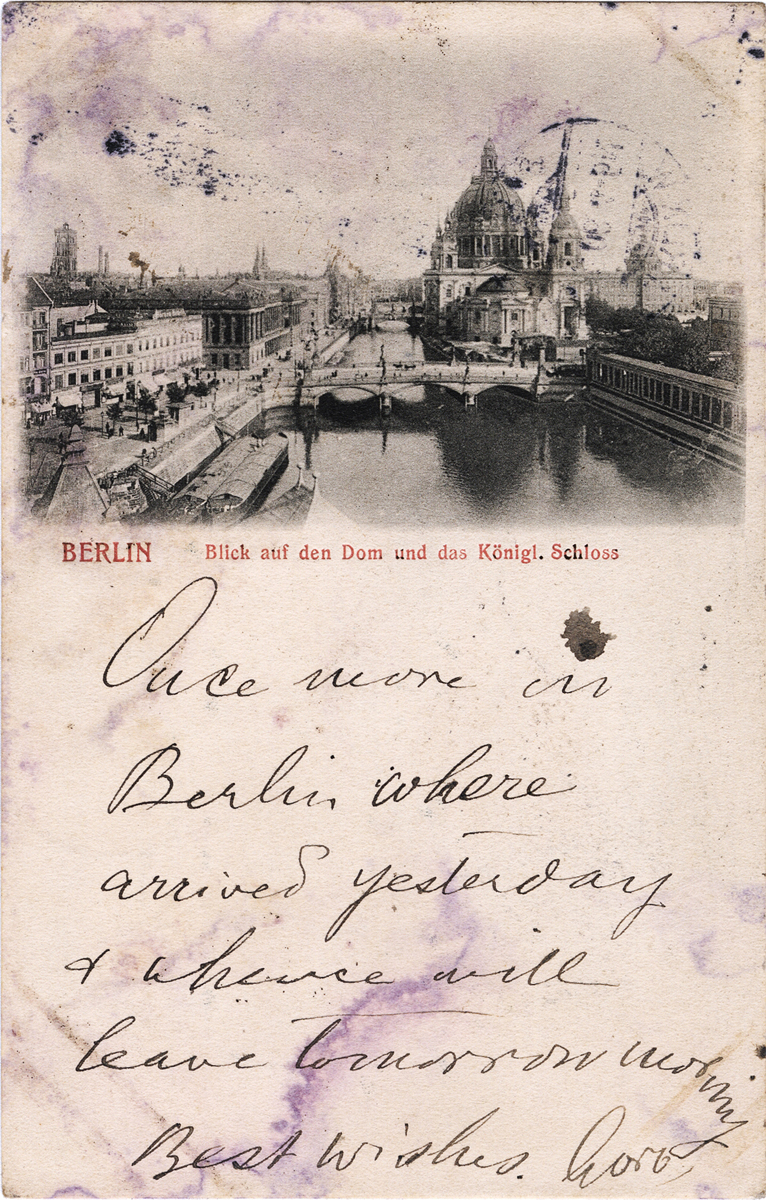 BERLIN Blick auf den Dom und das Königl. Schloss
Once more in
Berlin where
arrived yesterday
& whence will
leave tomorrow morning
Best wishes.